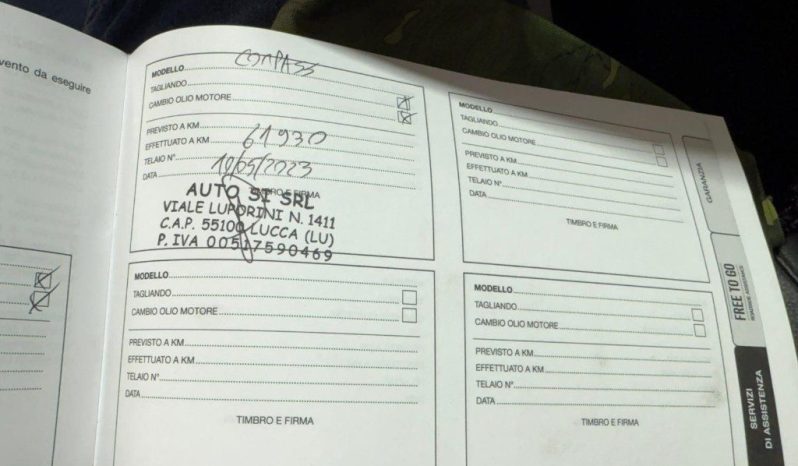 vento da eseguire
MODELLO COMPASS
TAGLIANDO
CAMBIO OLIO MOTORE
PREVISTO A KM
EFFETTUATO A KM 61930
TELAIO N°
DATA 10/05/2023
TIMBRO E FIRMA
AUTO SI SRL
VIALE LUPORINI N. 1411
C.A.P. 55100 LUCCA (LU)
P. IVA 00517590469
MODELLO
TAGLIANDO
CAMBIO OLIO MOTORE
PREVISTO A KM
EFFETTUATO A KM
TELAIO N°
DATA
TIMBRO E FIRMA
MODELLO
TAGLIANDO
CAMBIO OLIO MOTORE
PREVISTO A KM
EFFETTUATO A KM
TELAIO N°
DATA
TIMBRO E FIRMA
MODELLO
TAGLIANDO
CAMBIO OLIO MOTORE
PREVISTO A KM
EFFETTUATO A KM
TELAIO N°
DATA
TIMBRO E FIRMA
GARANZIA
FREE TO GO
SERVIZI
DI ASSISTENZA